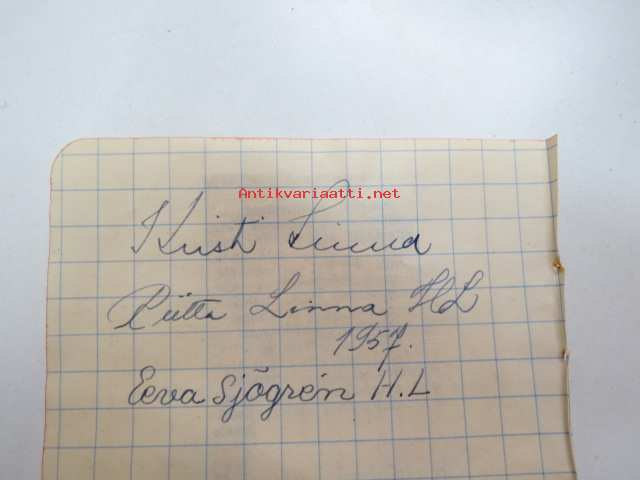 Antikvariaatti.net
Kristi Linna
Riitta Linna HL
1957.
Eeva Sjögrén H.L